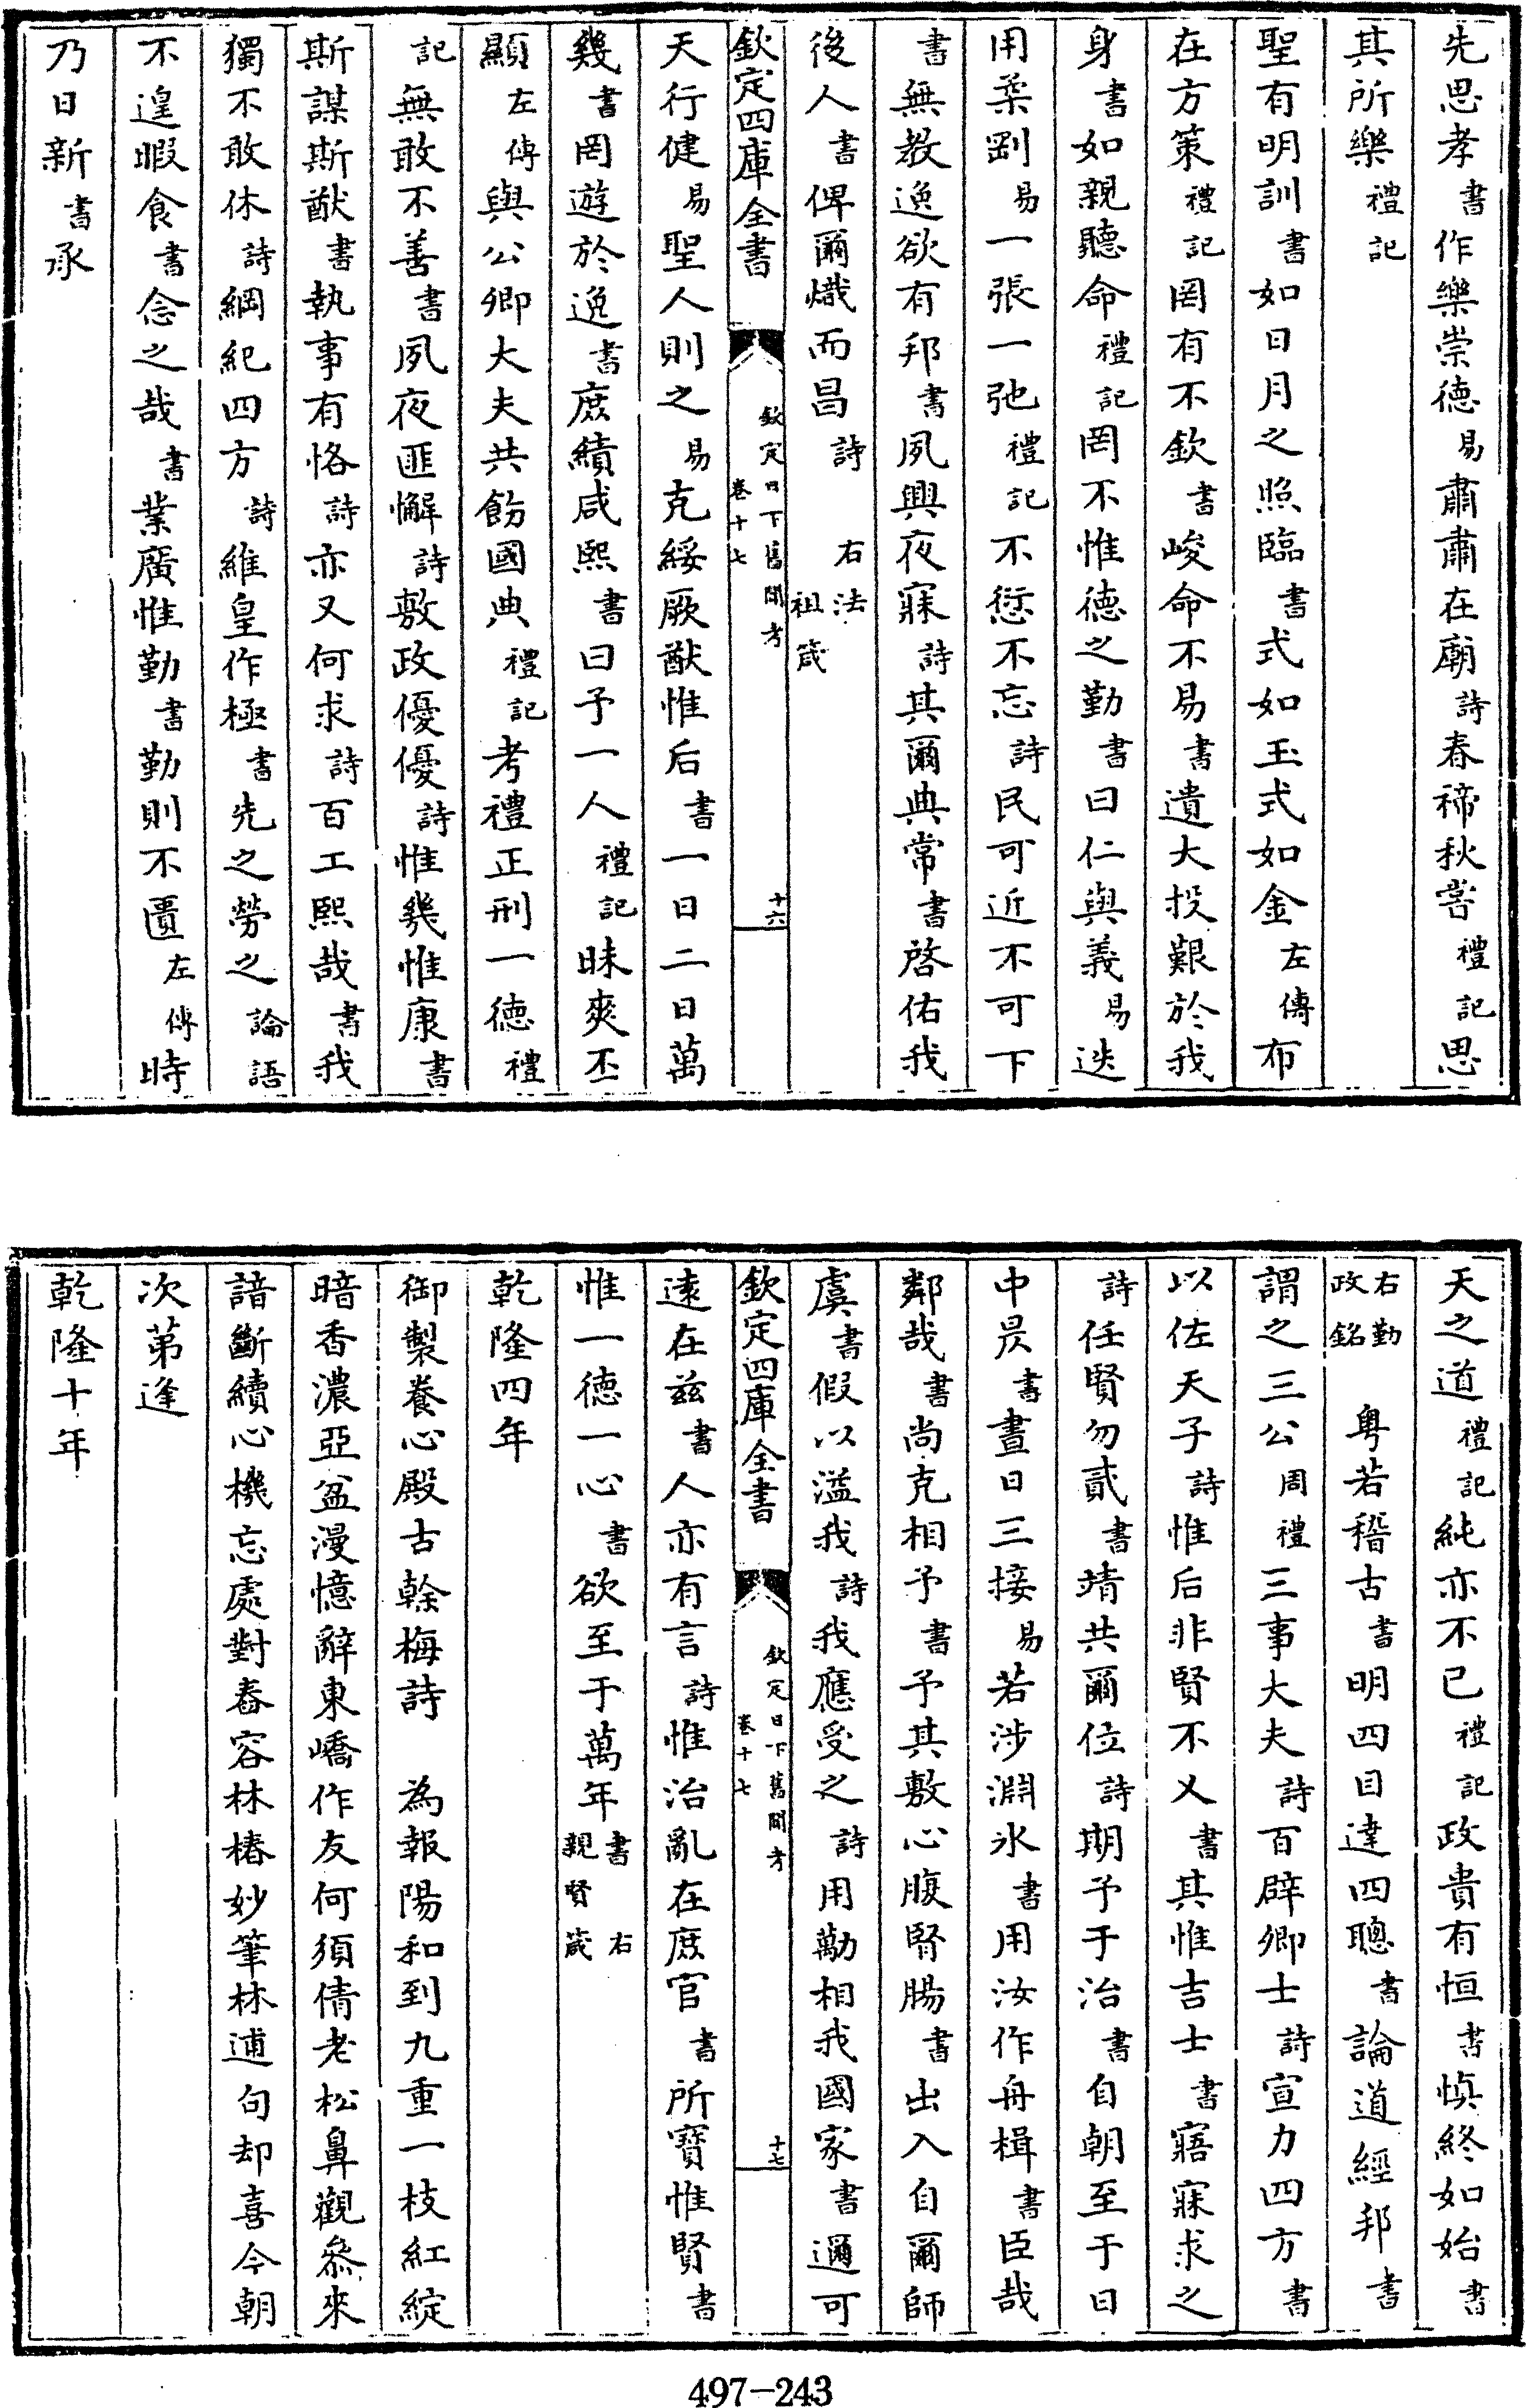 先思孝書作樂崇德易肅肅在廟詩春禘秋嘗禮記思
其所樂禮記
聖有明訓書如日月之照臨書式如玉式如金左傳布
在方策禮記罔有不欽書峻命不易書遺大投艱於我
身書如親聽命禮記罔不惟德之勤書曰仁與義易迭
用柔剛易一張一弛禮記不愆不忘詩民可近不可下
書無教逸欲有邦書夙興夜寐詩其爾典常書啓佑我
後人書俾爾熾而昌詩 右法祖箴
欽定四庫全書 欽定日下舊聞考 卷十七 十六
天行健易聖人則之易克綏厥猷惟后書一日二日萬
幾書罔遊於逸書庶績咸熙書曰予一人禮記昧爽丕
顯左傳與公卿大夫共飭國典禮記考禮正刑一德禮
記無敢不善書夙夜匪懈詩敷政優優詩惟幾惟康書
斯謀斯猷書執事有恪詩亦又何求詩百工熙哉書我
獨不敢休詩綱紀四方詩維皇作極書先之勞之論語
不遑暇食書念之哉書業廣惟勤書勤則不匱左傳時
乃日新書承
天之道禮記純亦不已禮記政貴有恒書慎終如始書
右勤政銘 粤若稽古書明四目達四聰書論道經邦書
謂之三公周禮三事大夫詩百辟卿士詩宣力四方書
以佐天子詩惟后非賢不乂書其惟吉士書寤寐求之
詩任賢勿貳書靖共爾位詩期予于治書自朝至于日
中昃書晝日三接易若涉淵氷書用汝作舟楫書臣哉
鄰哉書尚克相予書予其敷心腹腎腸書出入自爾師
虞書假以溢我詩我應受之詩用勱相我國家書邇可
欽定四庫全書 欽定日下舊聞考 卷十七 十七
逺在兹書人亦有言詩惟治亂在庶官書所寶惟賢書
惟一德一心書欲至于萬年書 右親賢箴
乾隆四年
御製養心殿古榦梅詩 為報陽和到九重一枝紅綻
暗香濃亞盆漫憶辭東嶠作友何須倩老松鼻觀叅來
諳斷續心機忘處對舂容林椿妙筆林逋句却喜今朝
次第逢
乾隆十年
497-243